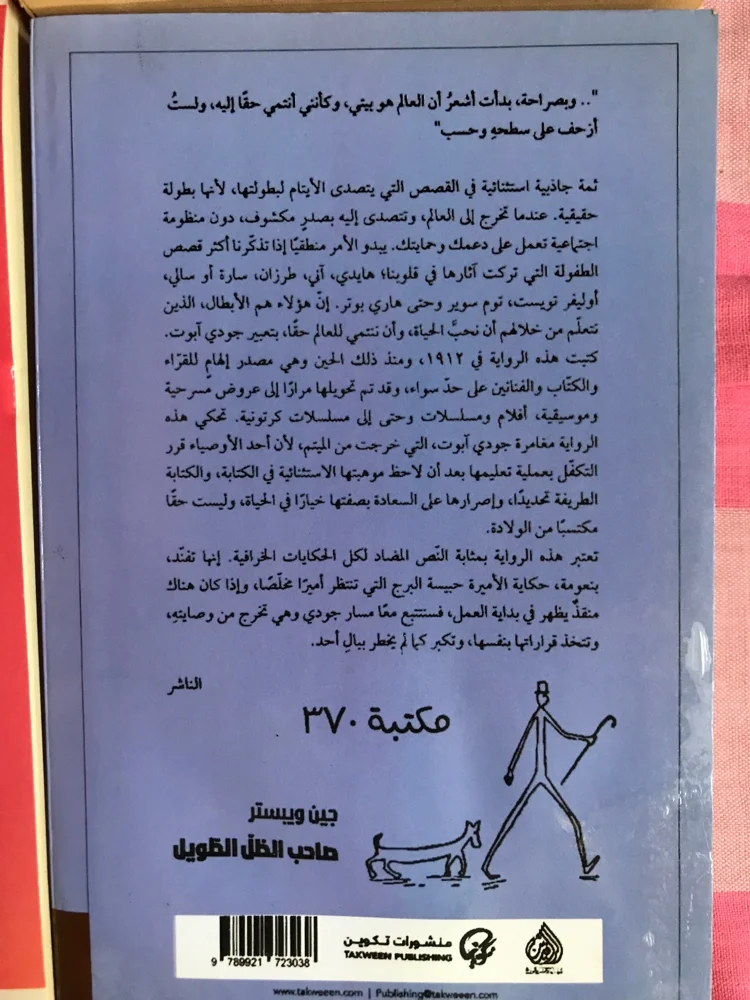 ".. وبصراحة، بدأت أشعرُ أن العالم هو بيتي، وكأنني أنتمي حقًا إليه، ولستُ
أزحف على سطحهِ وحسب"
ثمة جاذبية استثنائية في القصص التي يتصدى الأيتام لبطولتها، لأنها بطولة
حقيقية. عندما تخرج إلى العالم، وتتصدى إليه بصدرٍ مكشوف، دون منظومة
اجتماعية تعمل على دعمك وحمايتك. يبدو الأمر منطقيًا إذا تذكّرنا أكثر قصص
الطفولة التي تركت آثارها في قلوبنا؛ هايدي، آني، طرزان، سارة أو سالي،
أوليفر تويست، توم سوير وحتى هاري بوتر. إنّ هؤلاء هم الأبطال، الذين
نتعلّم من خلالهم أن نحبَّ الحياة، وأن ننتمي للعالم حقًا، بتعبير جودي آبوت.
كتبت هذه الرواية في ١٩١٢، ومنذ ذلك الحين وهي مصدر إلهامٍ للقرّاء
والكتّاب والفنانين على حدّ سواء، وقد تم تحويلها مرارًا إلى عروض مسرحية
وموسيقية، أفلام ومسلسلات وحتى إلى مسلسلات كرتونية. تحكي هذه
الرواية مغامرة جودي آبوت، التي خرجت من الميتم، لأن أحد الأوصياء قرر
التكفّل بعملية تعليمها بعد أن لاحظ موهبتها الاستثنائية في الكتابة، والكتابة
الطريفة تحديدًا، وإصرارها على السعادة بصفتها خيارًا في الحياة، وليست حقًا
مكتسبًا من الولادة.
تعتبر هذه الرواية بمثابة النّص المضاد لكل الحكايات الخرافية. إنها تفنّد،
بنعومة، حكاية الأميرة حبيسة البرج التي تنتظر أميرًا مخلّصًا، وإذا كان هناك
منقذٌ يظهر في بداية العمل، فسنتتبع معًا مسار جودي وهي تخرج من وصايتهِ،
وتتخذ قراراتها بنفسها، وتكبر كما لم يخطر ببالِ أحد.
الناشر
مكتبة ٣٧٠
جين ويبستر
صاحب الظلّ الطويل
منشورات تكوين
TAKWEEN PUBLISHING
9 789921 723038
www.takween.com | Publishing@takween.com